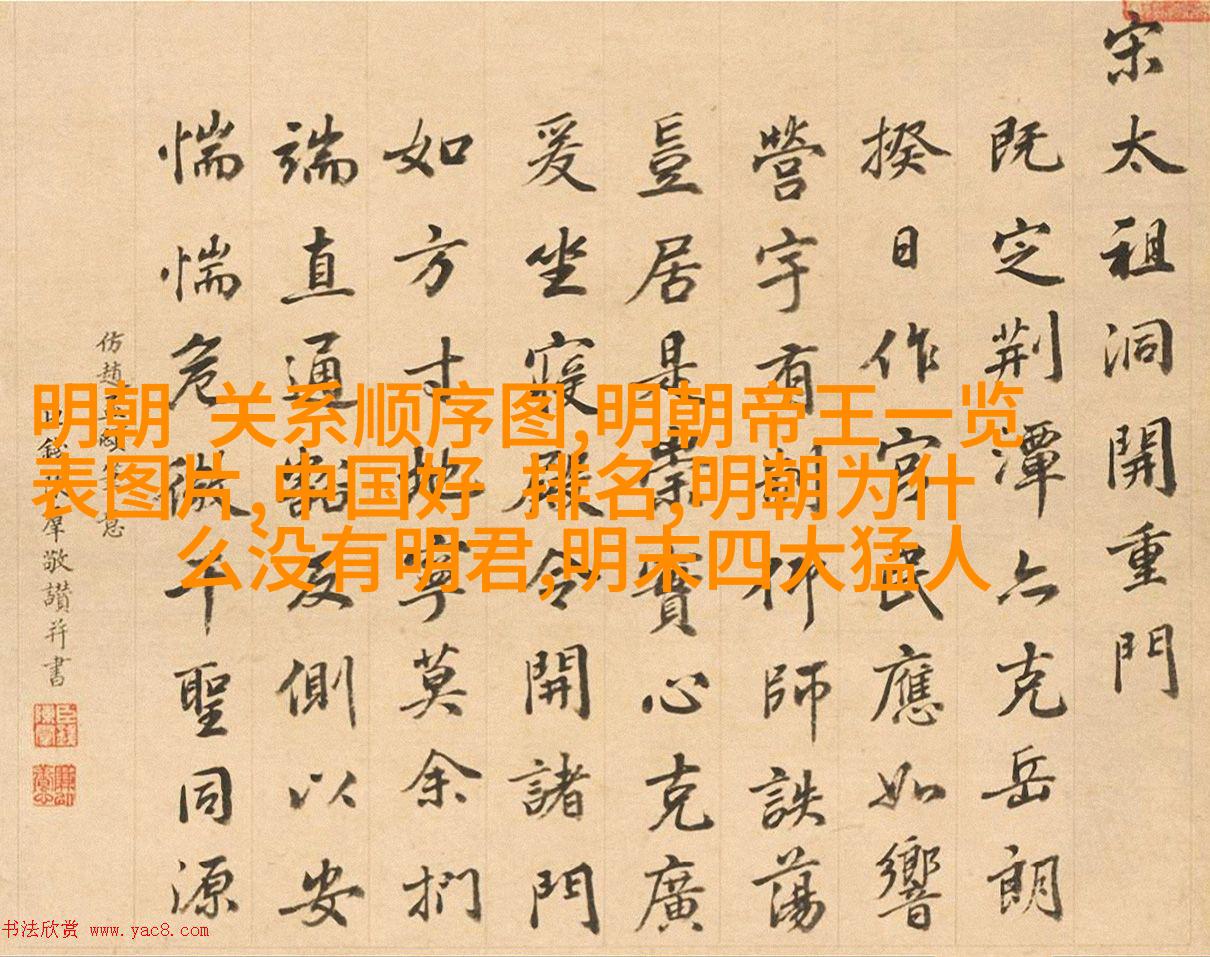 宋太祖洞開重門
既定荆潭亦克岳朗
揆日作宫民應如響
營宇有仰師詄蕩
豈居是崇實心克廣
爰坐寝殿令開諸門
如方寸地寧莫余捫
端直通豁反側以安
惴惴危微千聖同源
仿趙意
敬讃并書
明朝 关系顺序图,明朝帝王一览
表图片,中国好 排名,明朝为什
么没有明君,明末四大猛人
书法欣赏 www.yac8.com